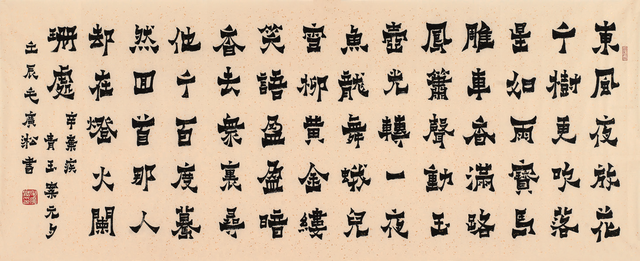 東風夜放花
千樹更吹落
星如雨寶馬
雕車香滿路
鳳簫聲動玉
壺光轉一夜
魚龍舞蛾兒
雪柳黃金縷
笑語盈盈暗
香去衆裏尋
他千百度驀
然回首那人
却在燈火闌
珊處
辛棄疾
青玉案元夕
壬辰毛廣淞書